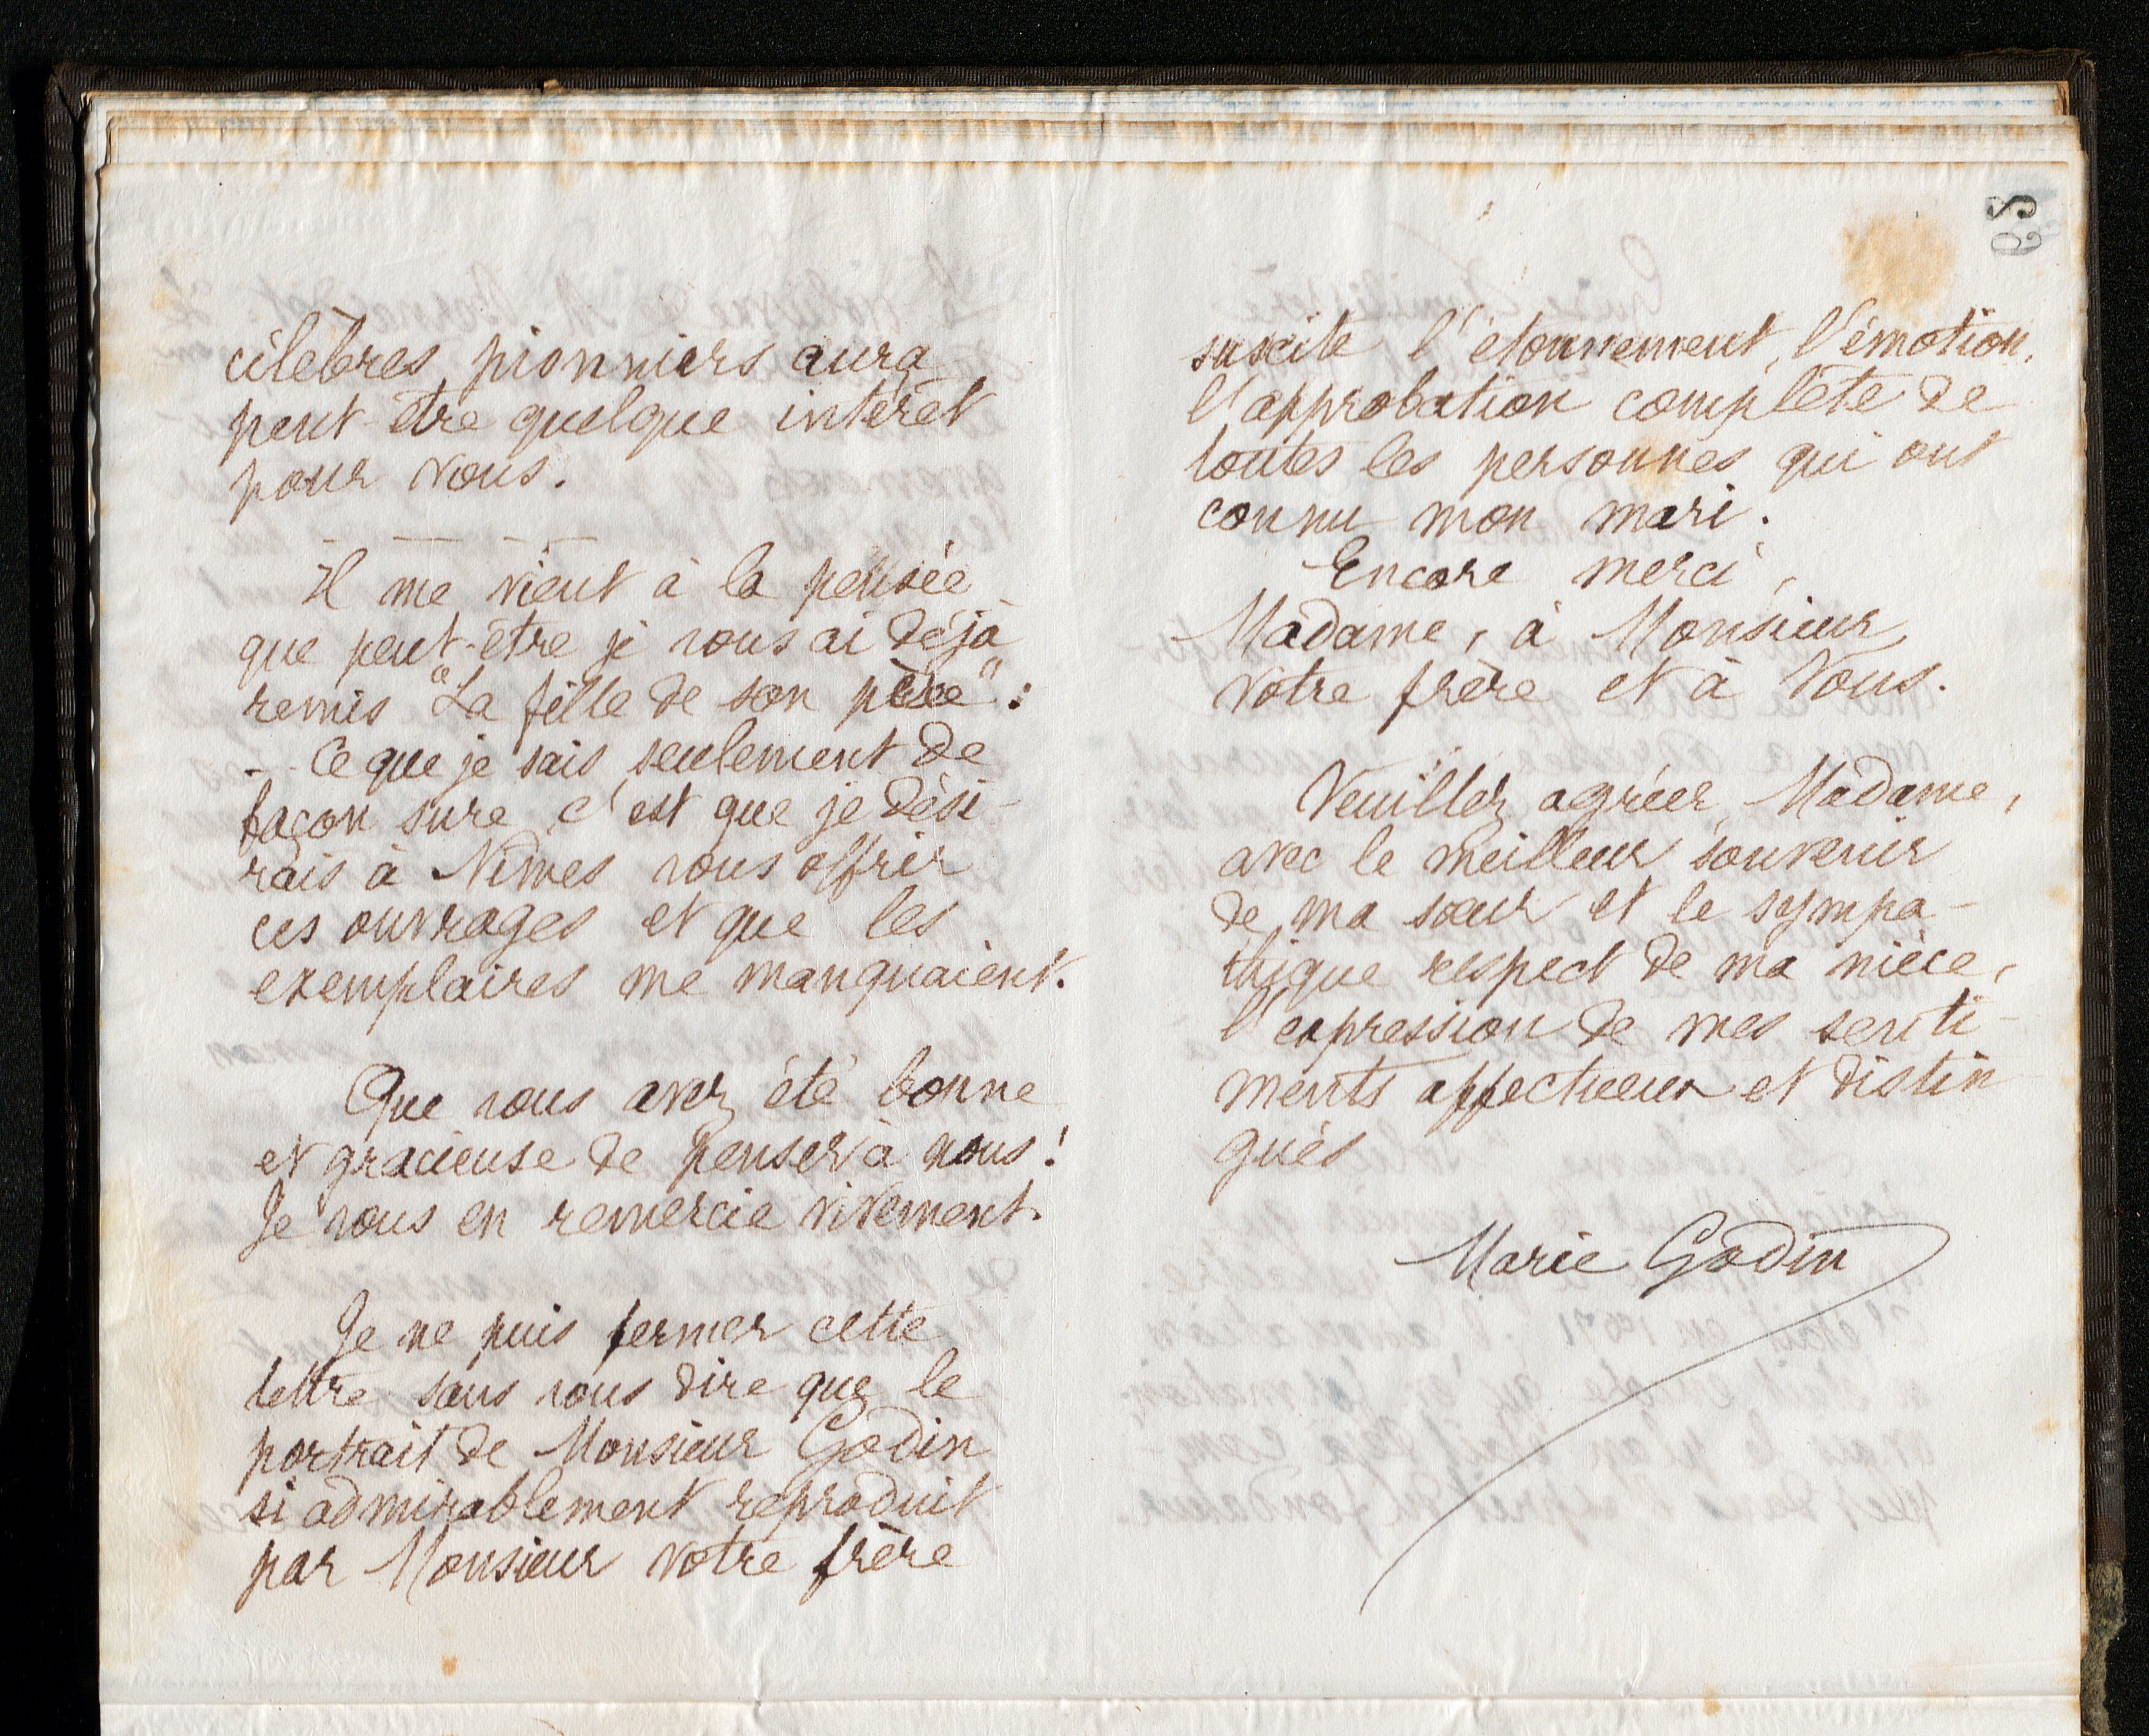 célèbres pionniers aura
peut-être quelque intérêt
pour vous.
Il me vient à la pensée
que peut-être je vous ai déjà
remis "La fille de son père":
- Ce que je sais seulement de
façon sure, c'est que je dési-
rais à Nîmes vous offrir
ces ouvrages et que les
exemplaires me manquaient.
Que vous avez été bonne
et gracieuse de penser à nous!
Je vous en remercie vivement.
Je ne puis fermer cette
lettre sans vous dire que le
portrait de Monsieur Godin
si admirablement reproduit
par Monsieur votre frère
68
suscite l'étonnement, l'émotion,
l'approbation complète de
toutes les personnes qui ont
connu mon mari.
Encore merci,
Madame, à Monsieur
votre frère et à Vous.
Veuillez agréer, Madame,
avec le meilleur souvenir
de ma sœur et le sympa-
thique respect de ma nièce,
l'expression de mes senti-
ments affectueux et distin
gués
Marie Godin